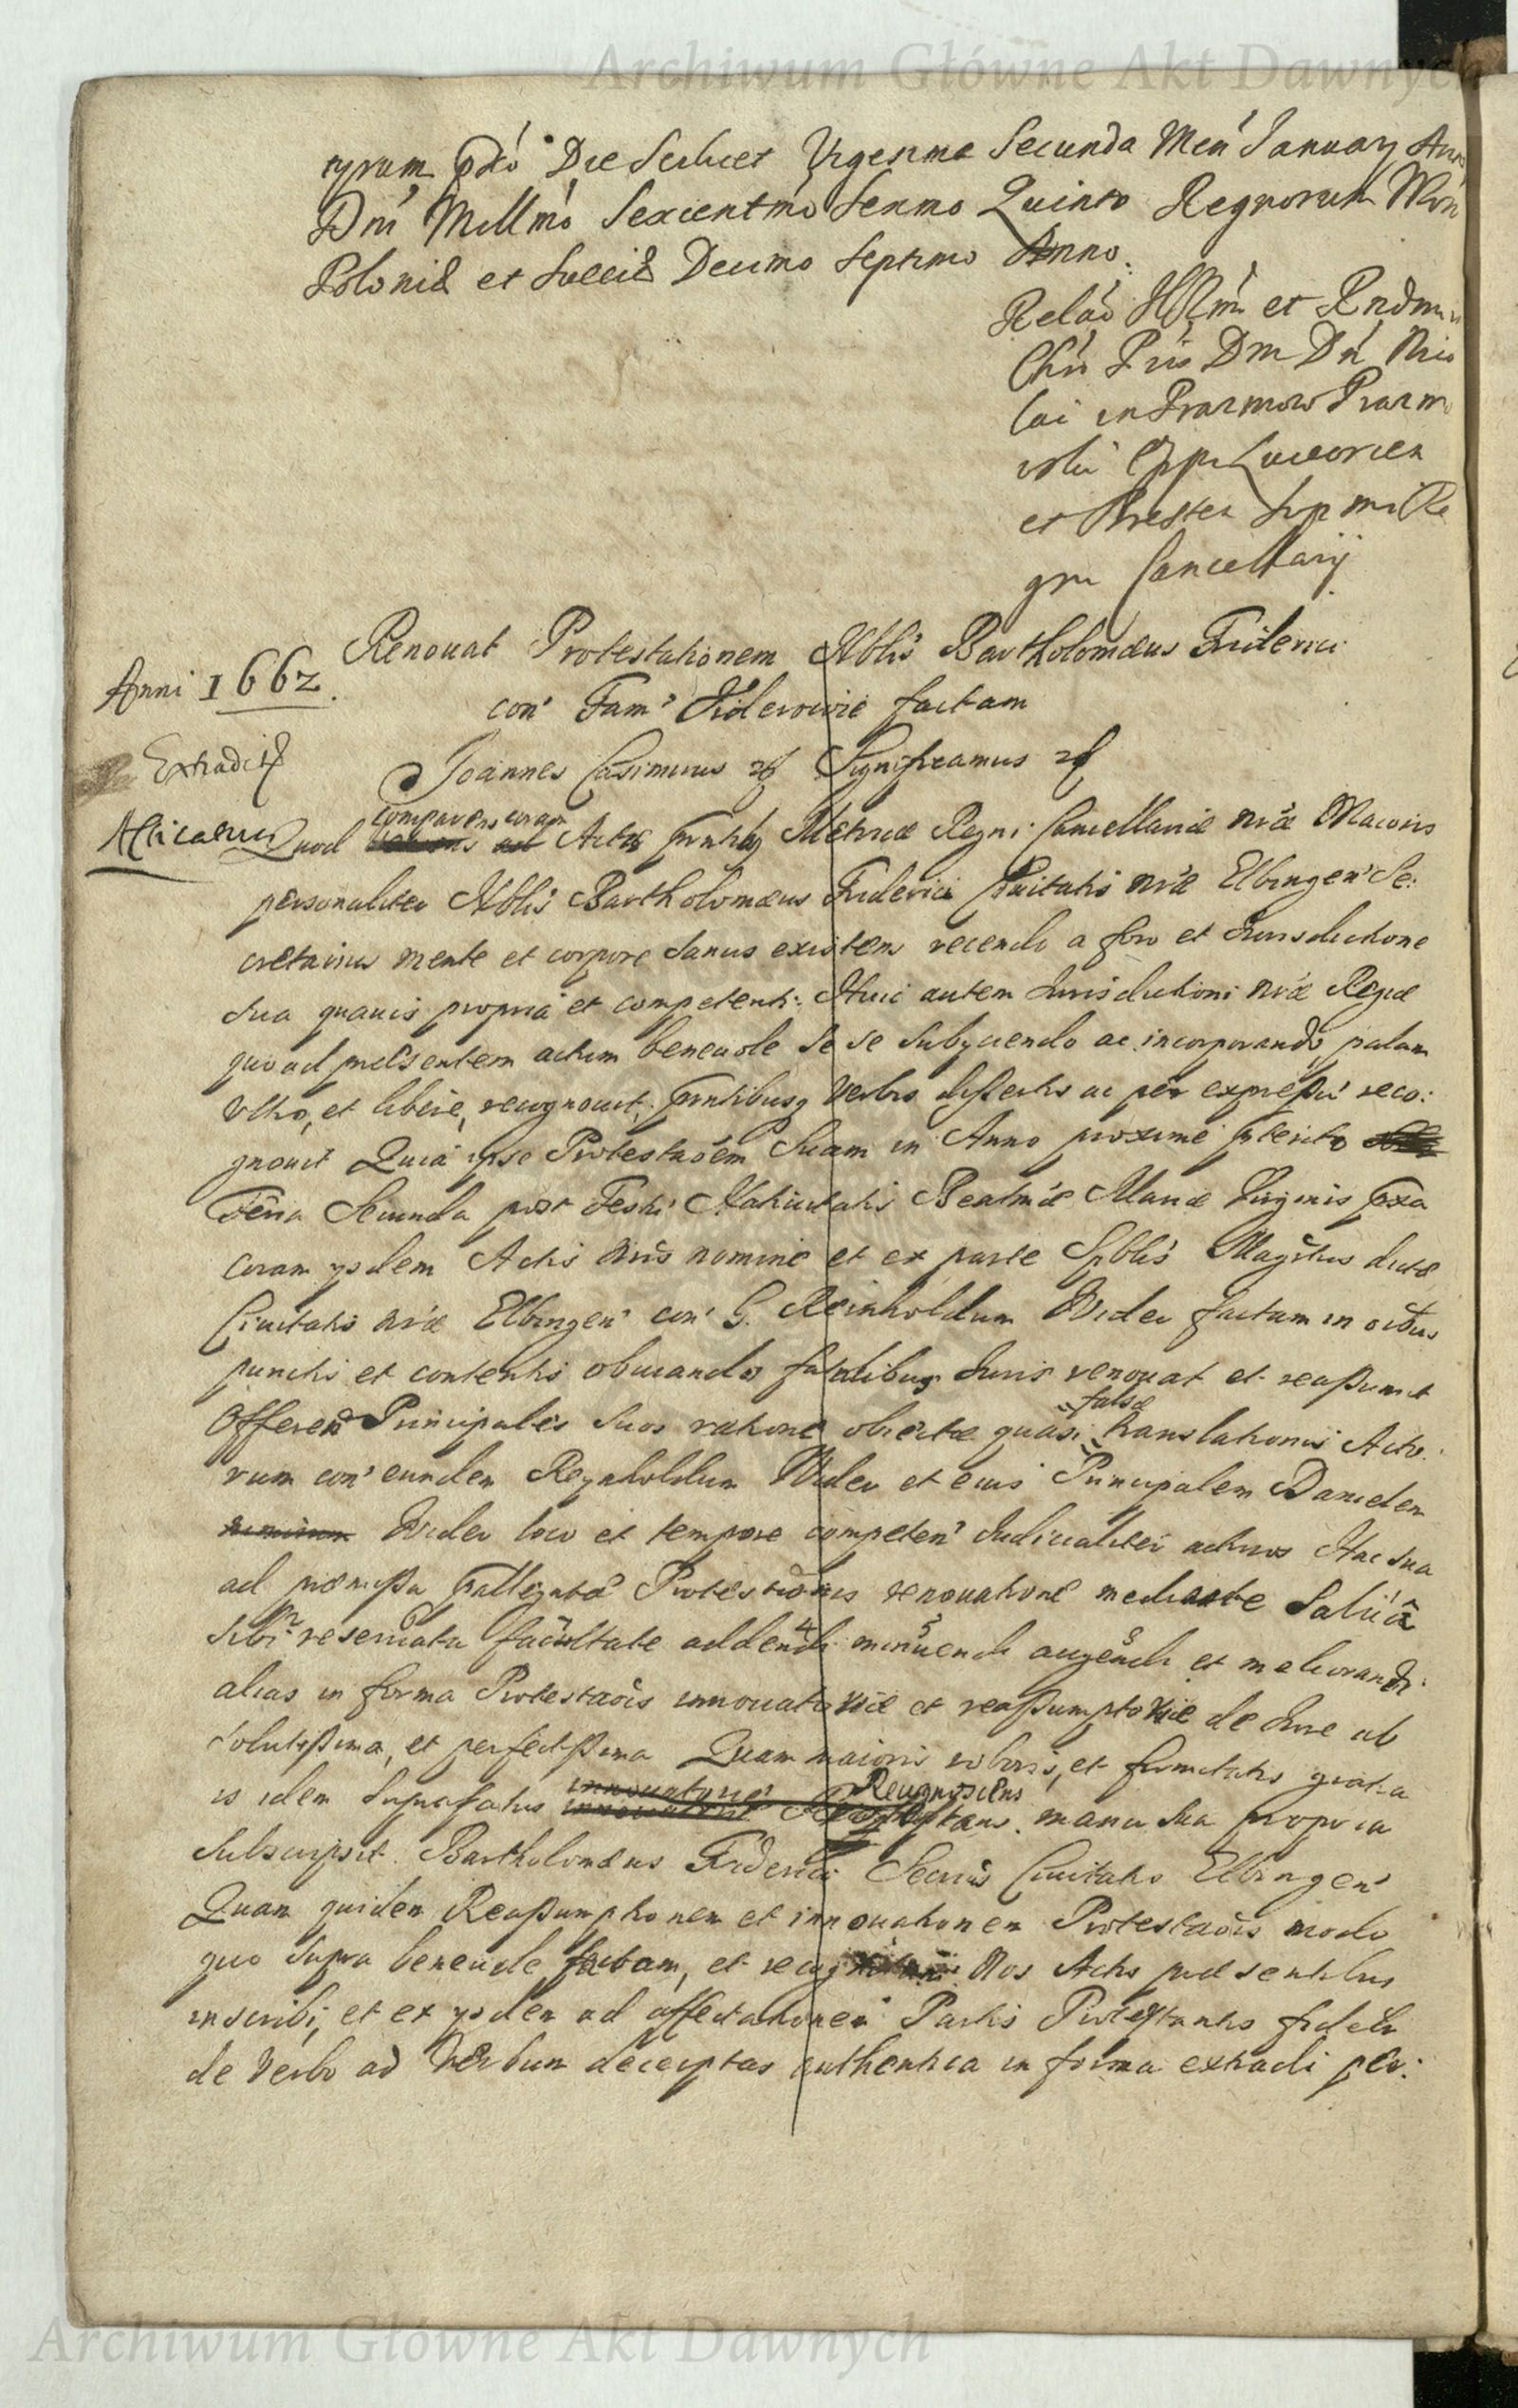 Archiwum Główne Akt Dawnych
Die Scilicet Vigesima Secunda Men January
Dni Millmo Sexcentmo Sexmo Quinto Regnorum
Poloniæ et Sueciæ Decimo Septimo Anno.
Relao et Rndmi
Chri Pris Dni Dni Nico
lai in Prazmow Prazmo
wski Eppi Luceorien
et Bresten Supmi Re
gni Cancellarij
Renouat Protestationem Nblis Bartholomæus Friderici
Anni 1662.
con' Fam' factam
Extradit
Joannes Casimirus Significamus
Acticatum
comparens coram
Quod Actis Metricæ Regni Cancellariæ nræ Maioris
personaliter Nblis Bartholomæus Friderici Ciuitatis nræ Elbingen' Se:
cretarius mente et corpore Sanus existens recendo a foro et Jurisdictione
Sua quauis propria et competenti: Huic autem Jurisdictioni nræ Regiæ
quo ad præsentem actum beneuole Se se Subyciendo ac incorporando palam
Vltro, et libere, recognouit, verbis disertis ac per expressu' reco:
gnouit Quia ipse Protestaoem Suam in Anno proxime pterito
Feria Secunda post Festi Natiuitatis Beatmæ Mariæ Virginis
Coram ysdem Actis nris nomine et ex parte Spblis Magrtus dictæ
Ciuitatis nræ Elbingen' con' G. Reinholdum Wider factam in oibus
punctis et contentis obuiando fatalibus Juris renouat et reassumit
falsæ
Offerend Principales Suos ratione obiectæ quasi translationis Acto:
rum con' eundem Reynholdum Wider et eius Principalem Danielem
Wider loco et tempore competen' Judicialiter acturos Hac Sua
ad præmissa Protestaois renouatione mediante Salua
Sibi reseruata facultate addendi minuendi augendi et meliorandi
alias in forma Protestaois innouatoriæ et reassumptoriæ de Jure ab
Solutissima, et perfectissima Quam maioris roboris, et firmitatis gratia
innouatoriæ Recognoscens
is idem Suprafatus manu Sua propria
Subscripsit. Bartholomæus Friderici Secrius Ciuitatis Elbingen'
Quam quidem Reassumptionem et innouationem Protestaois modo
quo Supra beneuole factam, et Nos Actis præsentibus
inscribi, et ex ysdem ad affectationem Partis Protestantis fideli
de Verbo ad Verbum deceptas authentica in forma extradi per:
Archiwum Główne Akt Dawnych